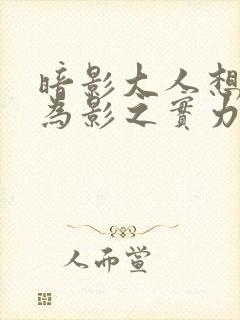 暗影大人想
為影之實力
人而黨